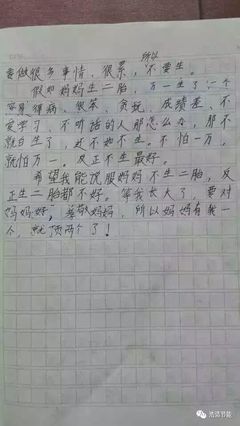 所以
要做很多事情、很累，不要生。
假如妈妈生二胎，万一生了一个
容易得病、很笨、贪玩、成绩差、不
爱学习、不听话的人那怎么办，那不
就白生了，还不如不生。不怕一万，
就怕万一。反正不生最好。
希望我能说服妈妈不生二胎，反
正生二胎都不好。等我长大了，要对
妈妈好，孝敬妈妈，所以妈妈有我一
个，就顶两个了！
浩洁节能